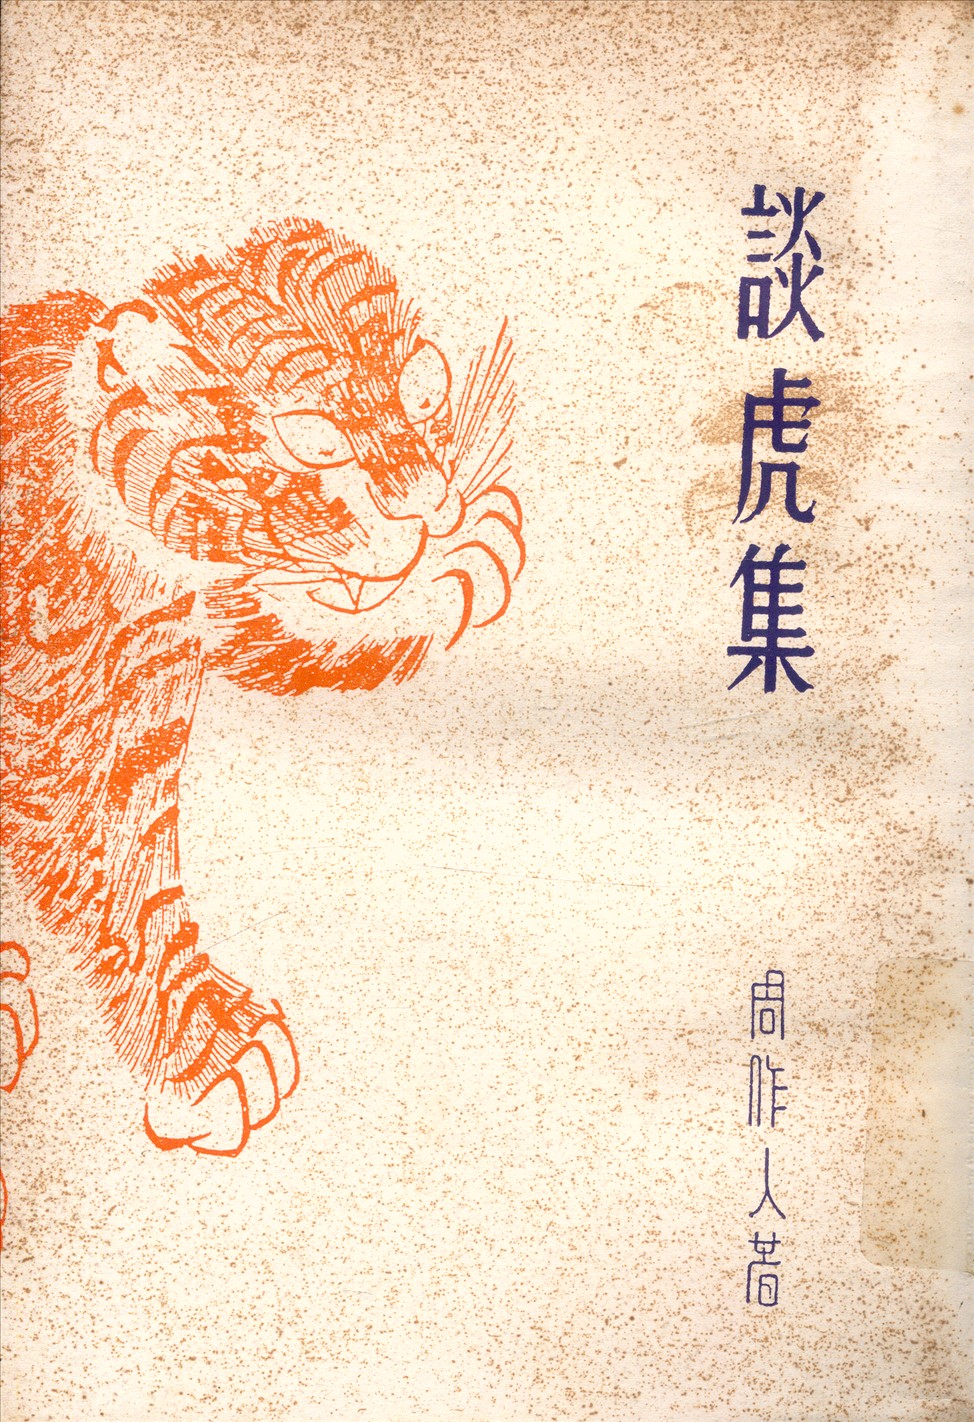 談虎集
周作人著